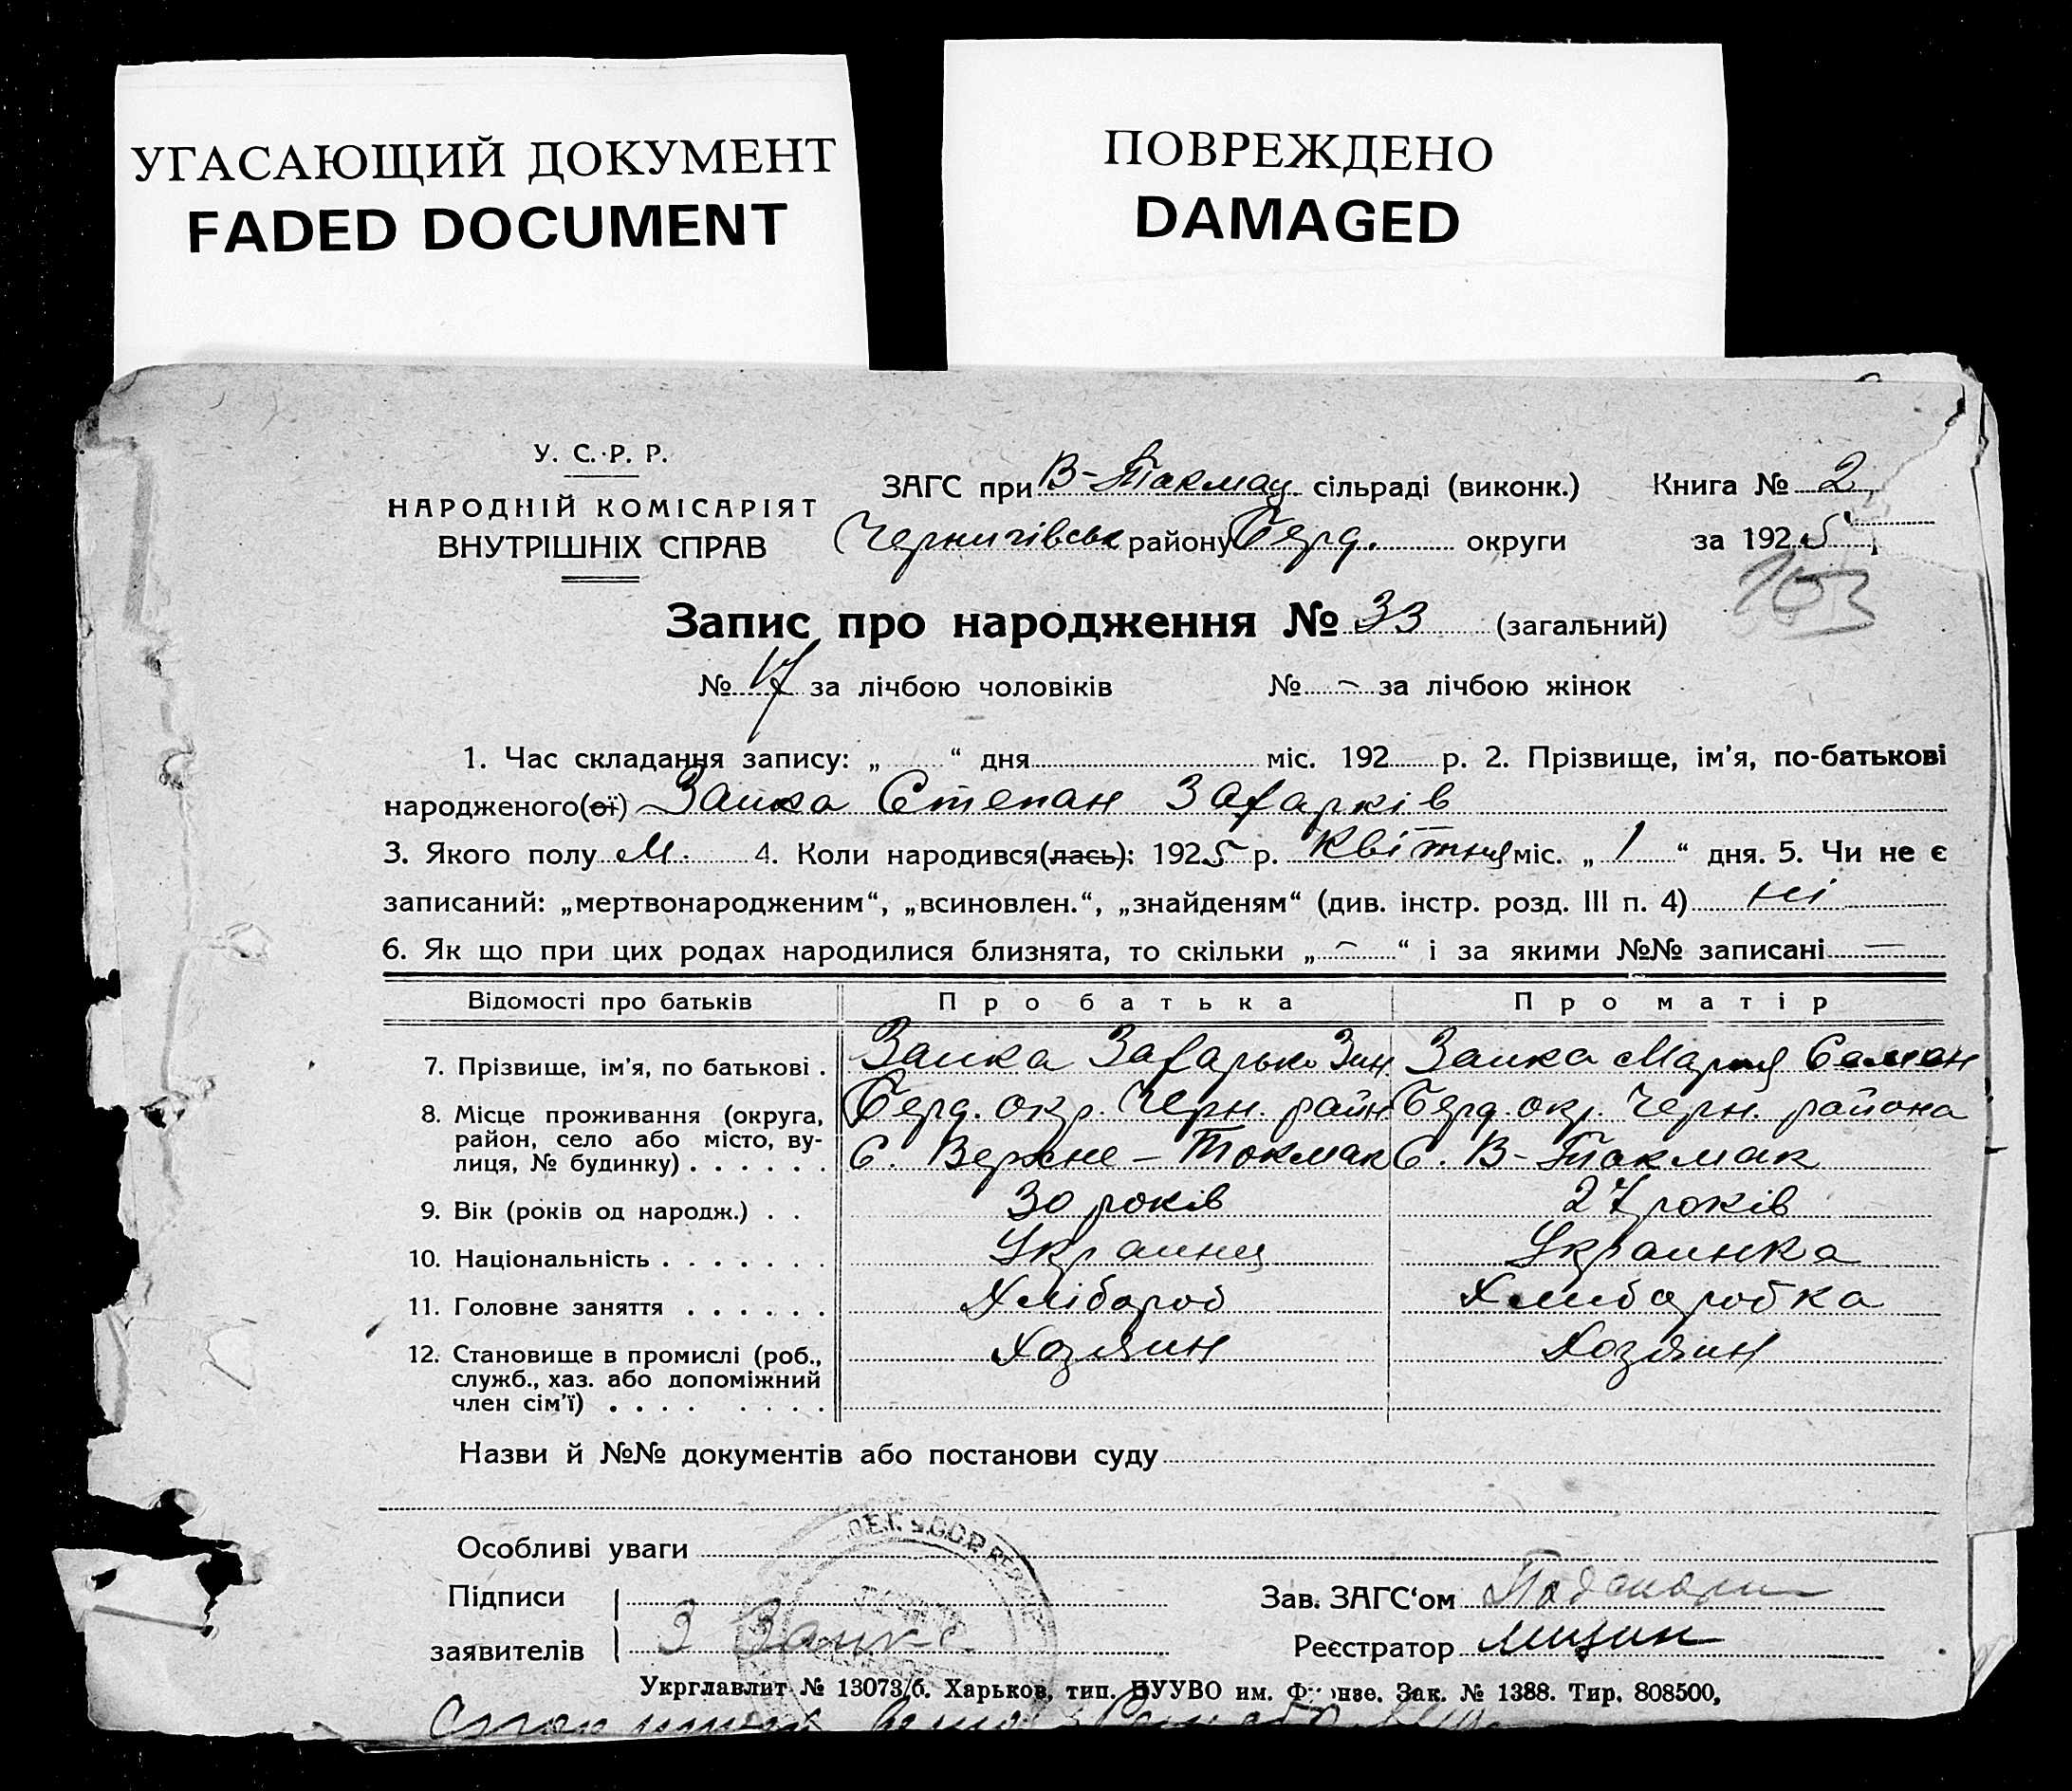 УГАСАЮЩИЙ ДОКУМЕНТ
FADED DOCUMENT
ПОВРЕЖДЕНО
DAMAGED
У. С. Р. Р.
НАРОДНІЙ КОМІСАРІЯТ
ВНУТРІШНІХ СПРАВ
ЗАГС при В-Токмац сільраді (виконк.) Книга № 2
Чернигівськ району Берд. округи за 1925
103
Запис про народження № 33 (загальний)
№ 17 за лічбою чоловіків № – за лічбою жінок
1. Час складання запису: „ “ дня міс. 192 р. 2. Прізвище, ім’я, по-батькові
народженого(ої) Заика Степан Захарків
3. Якого полу М. 4. Коли народився(лась): 1925 р. Квітня міс. „ 1 “ дня. 5. Чи не є
записаний: „мертвонародженим“, „всиновлен.“, „знайденям“ (див. інстр. розд. III п. 4) ні
6. Як що при цих родах народилися близнята, то скільки „ – “ і за якими №№ записані —
Відомості про батьків Про батька Про матір
7. Прізвище, ім’я, по батькові . Заика Захарько Зин. Заика Мария Семен
8. Місце проживання (округа, Берд. окр. Черн. райн. Берд. окр. Черн. района
район, село або місто, ву-
лиця, № будинку) . . . . . . С. Верхне-Токмак С. В-Токмак
9. Вік (років од народж.) . . 30 років 27 років
10. Національність . . . . . . . Украинец Украинка
11. Головне заняття . . . . . . Хлібороб Хлиборобка
12. Становище в промислі (роб., Хозяин Хозяин
служб., хаз. або допоміжний
член сім’ї) . . . . . . . .
Назви й №№ документів або постанови суду
Особливі уваги
Підписи Зав. ЗАГС‘ом
заявителів З Заика Реєстратор
Укрглавлит № 13073/б. Харьков, тип. ВУУВО им. Фрунзе. Зак. № 1388. Тир. 808500,